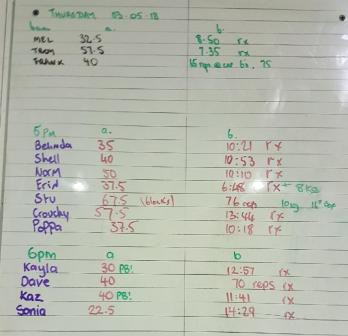 • THURSDAY 03.05.18
a. b.
MEL 32.5 8.50 rx
TROM 57.5 7.35 rx
FRANK 40
5pm a. b.
Belinda 35 10:21 rx
Shell 40 10:53 rx
Norm 50 10:10 rx
Erin 37.5 6:48 rx + 8kg
Stu 67.5 (blocks) 76 reps 10kg
Crouchy 57.5 13:44 rx
Poppa 37.5 10:18 rx
6pm a b
Kayla 30 PB! 12:57 rx
Dave 40 70 reps rx
Kaz 40 PB! 11:41 rx
Sonia 22.5 14:29 rx